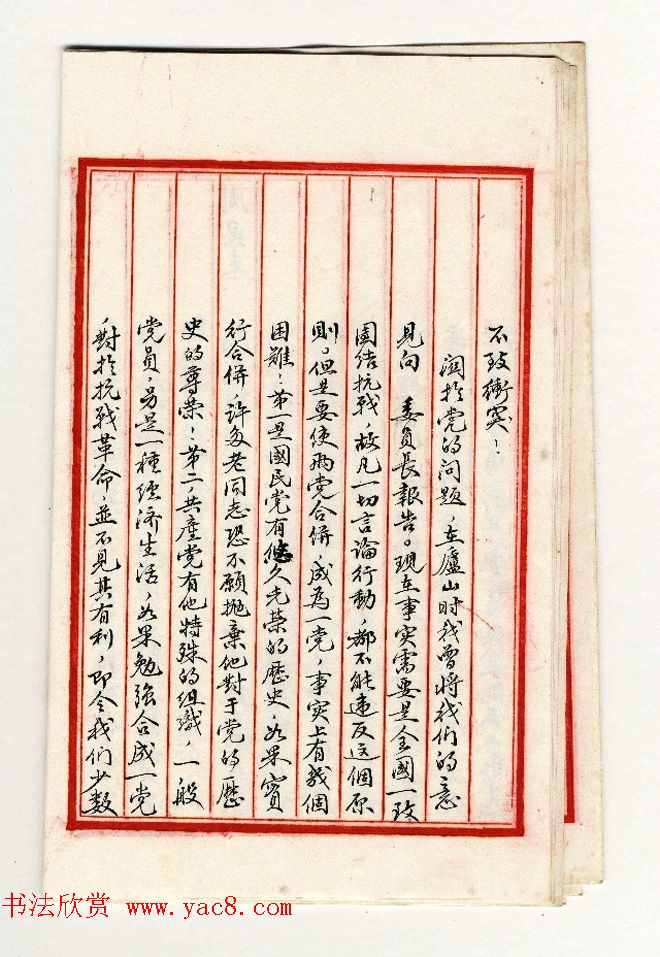 不致衝突！
關於党的问题，在廬山时我曾将我们的意
見向 委員長報告。現在事实需要是全國一致
團结抗戰，故凡一切言論行動，都不能違反这個原
則。但是要使兩党合併，成為一党，事实上有幾個
困難：第一是國民党有悠久光荣的歷史，如果實
行合併，許多老同志恐不願抛棄他對于党的歷
史的尊荣；第二，共產党有他特殊的组織，一般
党員，另是一種经济生活，如果勉強合成一党
，對於抗戰革命，並不見其有利，即令我们少数
书法欣赏 www.yac8.com